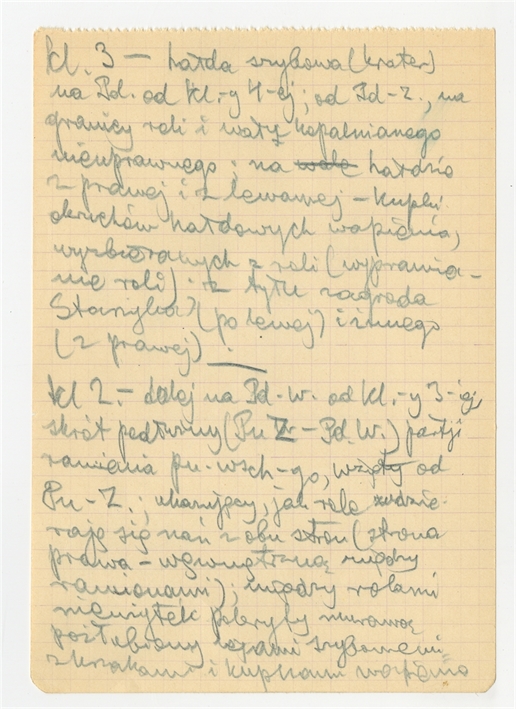 kl. 3 – hałda szybowa (krater)
na Pd. od kl.-y 4-ej; od Pd-Z., na
granicy roli i wału kopalnianego
nieuprawnego; na hałdzie
z prawej i z lewej – kupki
okruchów hałdowych wapienia,
wyzbieranych z roli (wyprawia-
nie roli). z tyłu zagroda
(po lewej) i innego
(z prawej).
kl 2. – dalej na Pd-W. od kl.-y 3-ej,
skrót (Pn Z – Pd. W.) partji
ramienia pn.-wsch-go, wzięty od
Pn-Z.; ukazujący, jak role wdzie-
rają się nań z obu stron (strona
prawa – wewnętrzna między
ramionami); między rolami
nieużytek pokryty murawą
pożłobiony szybowemi
z krzakami i kupkami wapienia